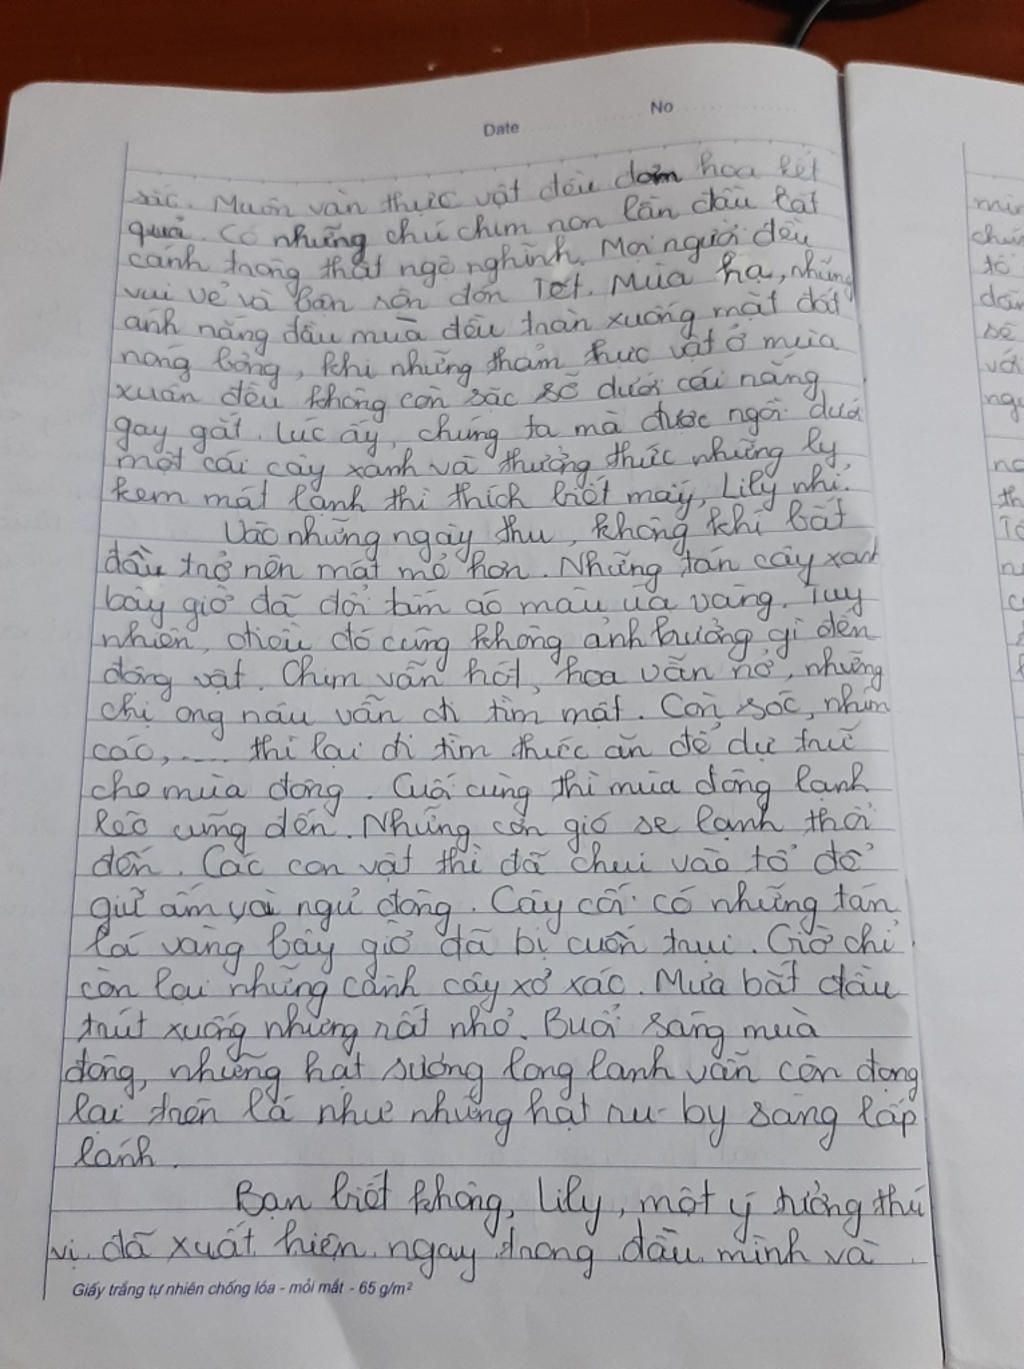 No
Date
sắc. Muôn vàn thực vật đều đơm hoa kết
quả. Có những chú chim non lần đầu cất
cánh trông thật ngộ nghĩnh. Mọi người đều
vui vẻ và bận rộn đón Tết. Mùa hạ, những
ánh nắng đầu mùa đều tràn xuống mặt đất
nóng bỏng, khi những thảm thực vật ở mùa
xuân đều không còn sặc sỡ dưới cái nắng
gay gắt. Lúc ấy, chúng ta mà được ngồi dưới
một cái cây xanh và thưởng thức những ly
kem mát lạnh thì thích biết mấy, Lily nhỉ.
Vào những ngày thu, không khí bắt
đầu trở nên mát mẻ hơn. Những tán cây xanh
bây giờ đã đổi tấm áo màu úa vàng. Tuy
nhiên, điều đó cũng không ảnh hưởng gì đến
động vật. Chim vẫn hót, hoa vẫn nở, những
chị ong nâu vẫn đi tìm mật. Còn sóc, nhím
cáo, .... thì lại đi tìm thức ăn để dự trữ
cho mùa đông. Cuối cùng thì mùa đông lạnh
lẽo cũng đến. Những cơn gió se lạnh thổi
đến. Các con vật thì đã chui vào tổ để
giữ ấm và ngủ đông. Cây cối có những tán
lá vàng bây giờ đã bị cuốn trụi. Giờ chỉ
còn lại những cành cây xơ xác. Mưa bắt đầu
trút xuống nhưng rất nhỏ. Buổi sáng mùa
đông, những hạt sương long lanh vẫn còn đọng
lại trên lá như những hạt ru-by sáng lấp
lánh.
Bạn biết không, Lily, một ý tưởng thú
vị đã xuất hiện ngay trong đầu mình và
Giấy trắng tự nhiên chống lóa - mỏi mắt - 65 g/m²